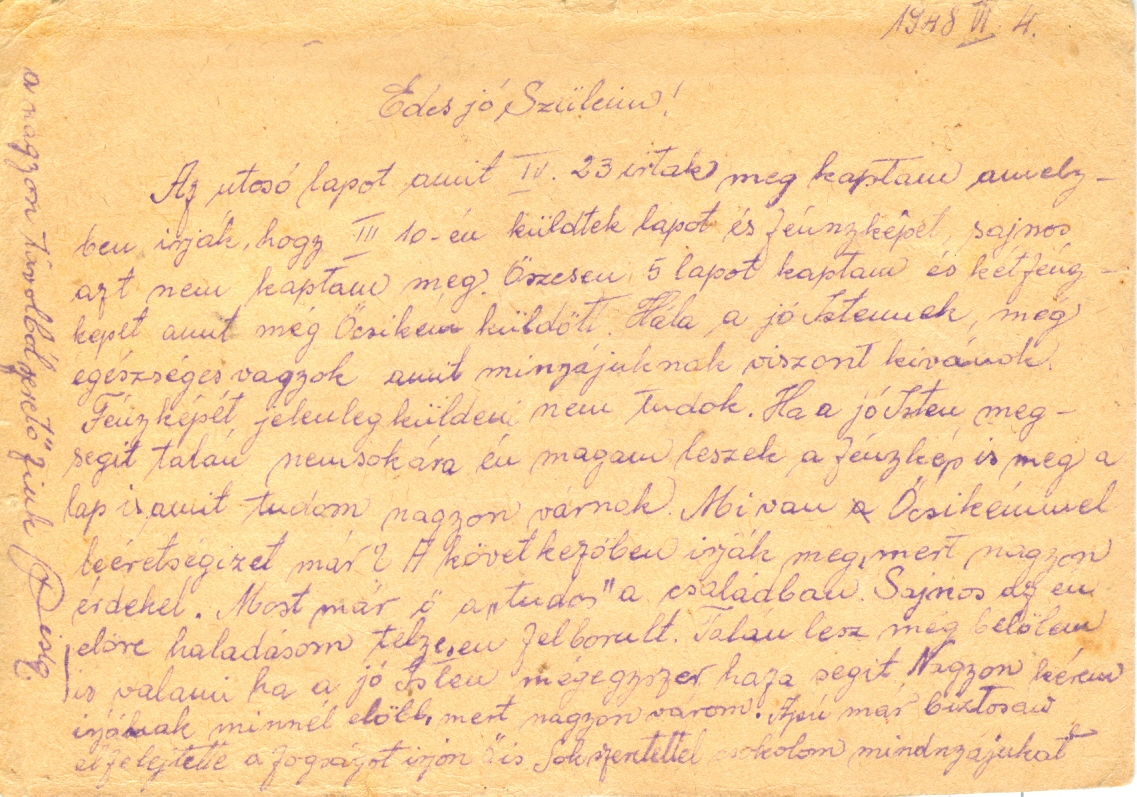 1948 VI. 4.
Édes jó Szüleim!
Az utosó lapot amit IV. 23 irtak meg kaptam amely-
ben irják, hogy III 10-én küldtek lapot és fényképet, sajnos
azt nem kaptam meg. Öszesen 5 lapot kaptam és két fény-
képet amit még Öcsikém küldött. Hála a jó Istennek, még
egészséges vagyok amit minyájuknak viszont kivánok.
Fényképét jelenleg küldeni nem tudok. Ha a jó Isten meg-
segit talán nemsokára én magam leszek a fénykép is meg a
lap is amit tudom nagyon várnak. Mi van a Öcsikémmel
leéretségizet már? A következőben irják meg, mert nagyon
érdekel. Most már ő a „tudos" a családban. Sajnos az én
előre haladásom telyesen felborult. Talán lesz még belőlem
is valami ha a jó Isten mégegyszer haza segit Nagyon kérem
irjának minnél előll, mert nagyon várom. Apu már biztosan
elfelejtette a fogságot irjon ő is Sok szeretettel csokolom mindnyájukat
a nagyon távolból szerető" fiuk